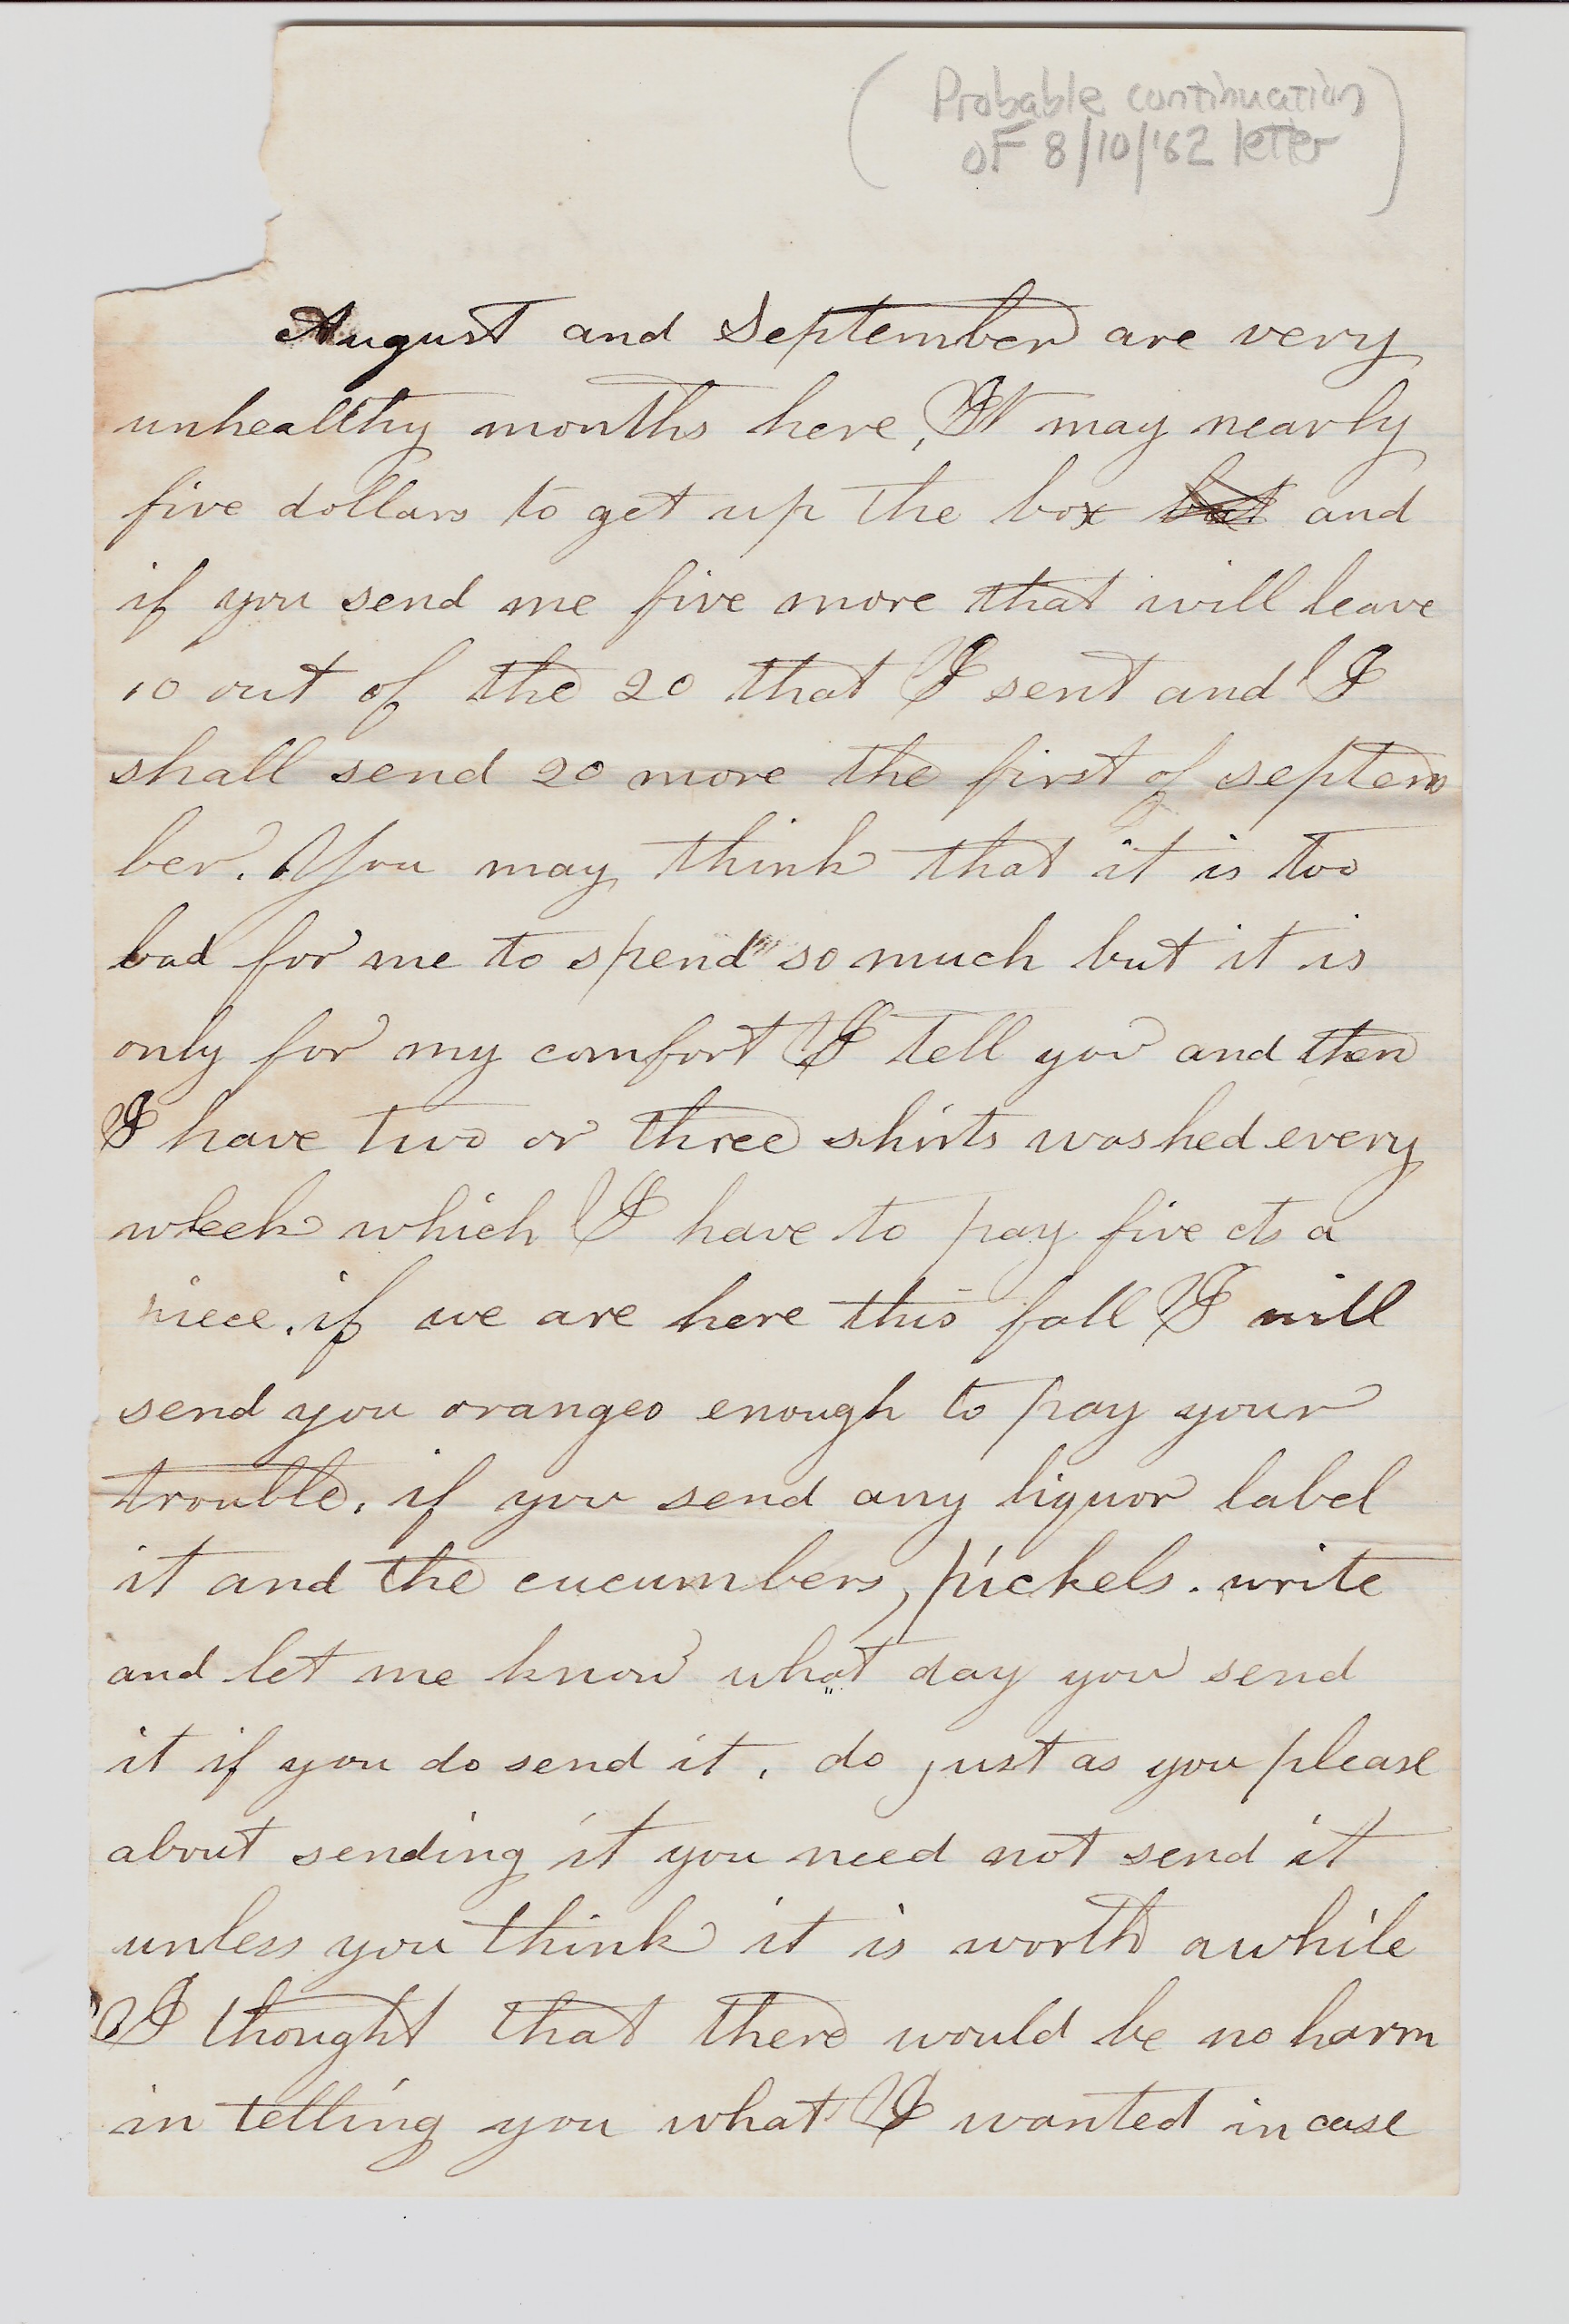 (Probable continuation
of 8/10/'62 letter)
August and September are very
unhealthy months here, It may nearly
five dollars to get up the box but and
if you send me five more that will leave
10 out of the 20 that I sent and I
shall send 20 more the first of septem
ber. You may think that it is too
bad for me to spend so much but it is
only for my comfort I tell you and then
I have two or three shirts washed every
week which I have to pay five cts a
piece. if we are here this fall I will
send you oranges enough to pay your
trouble. if you send any liquor label
it and the cucumbers, pickels. write
and let me know what day you send
it if you do send it. do just as you please
about sending it you need not send it
unless you think it is worth awhile
I thought that there would be no harm
in telling you what I wanted in case